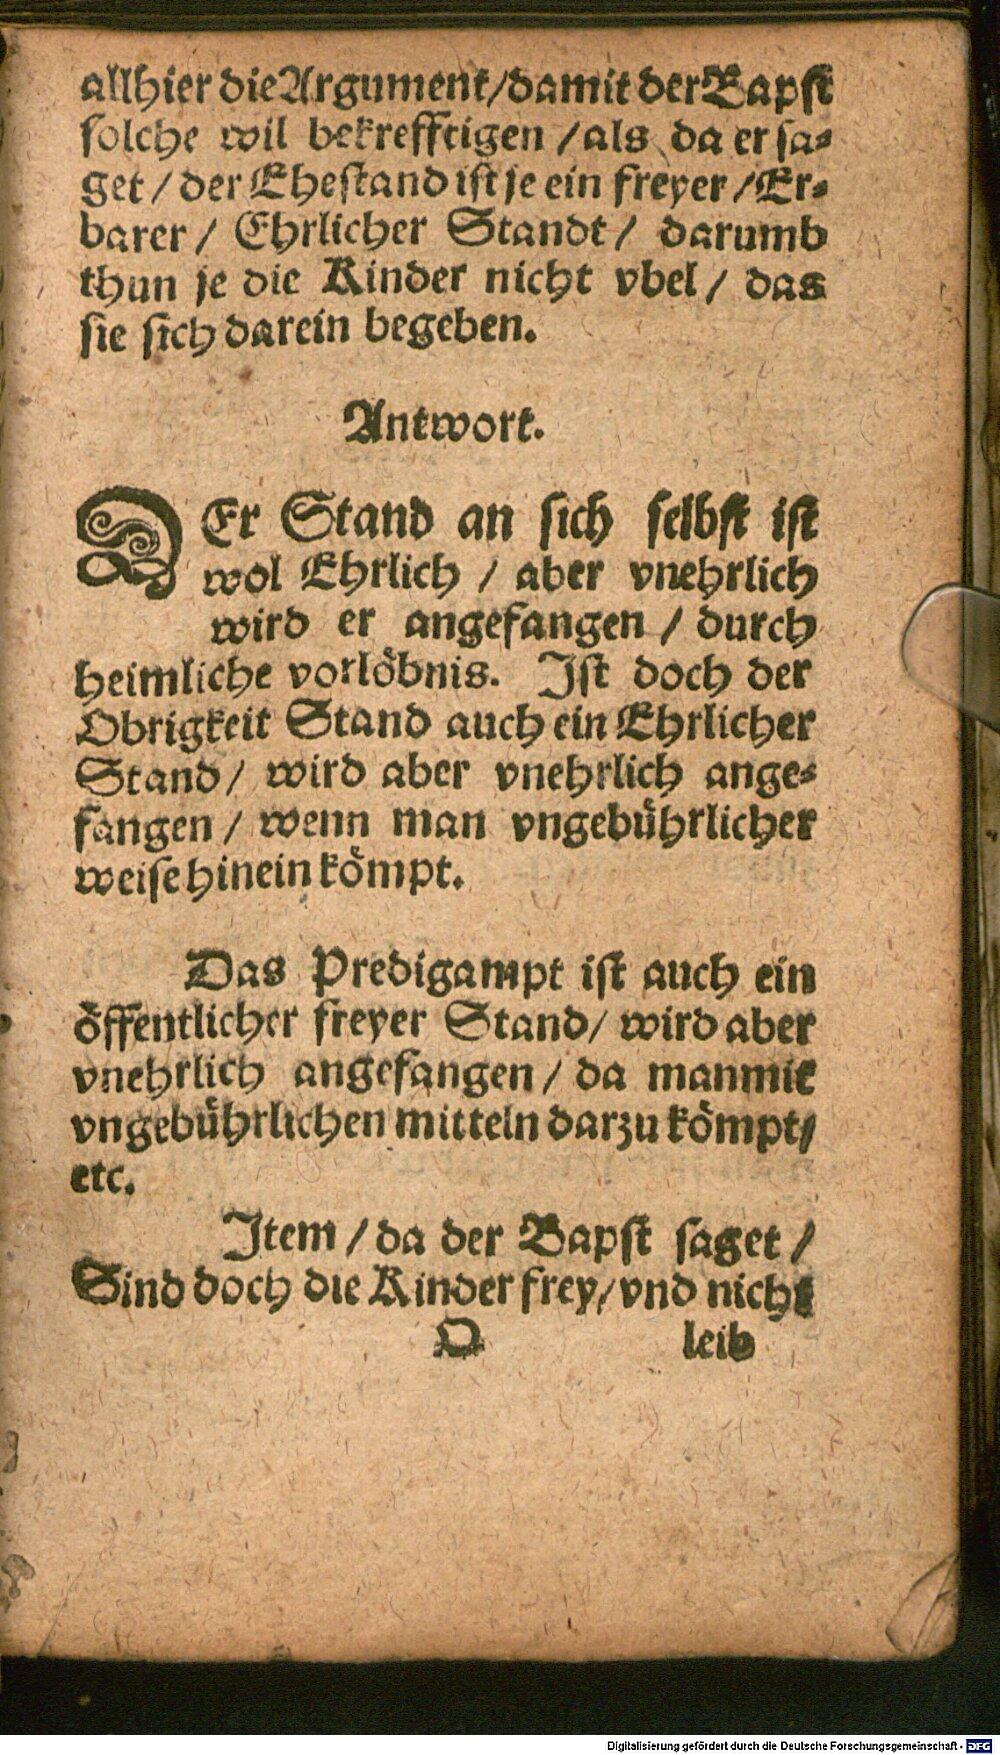 allhier die Argument/damit der Bapst
solche wil bekrefftigen /als da er sa⸗
get / der Ehestand ist je ein freyer /Er⸗
barer / Ehrlicher Standt / darumb
thun je die Kinder nicht vbel / das
sie sich darein begeben.
Antwort.
DEr Stand an sich selbst ist
wol Ehrlich / aber vnehrlich
wird er angefangen / durch
heimliche vorlöbnis. Ist doch der
Obrigkeit Stand auch ein Ehrlicher
Stand / wird aber vnehrlich ange⸗
fangen / wenn man vngebührlicher
weise hinein kömpt.
Das Predigampt ist auch ein
öffentlicher freyer Stand/ wird aber
vnehrlich angefangen / da man mit
vngebührlichen mitteln darzu kömpt/
etc.
Item / da der Bapst saget /
Sind doch die Kinder frey/vnd nicht
O leib
Digitalisierung gefördert durch die Deutsche Forschungsgemeinschaft - DFG